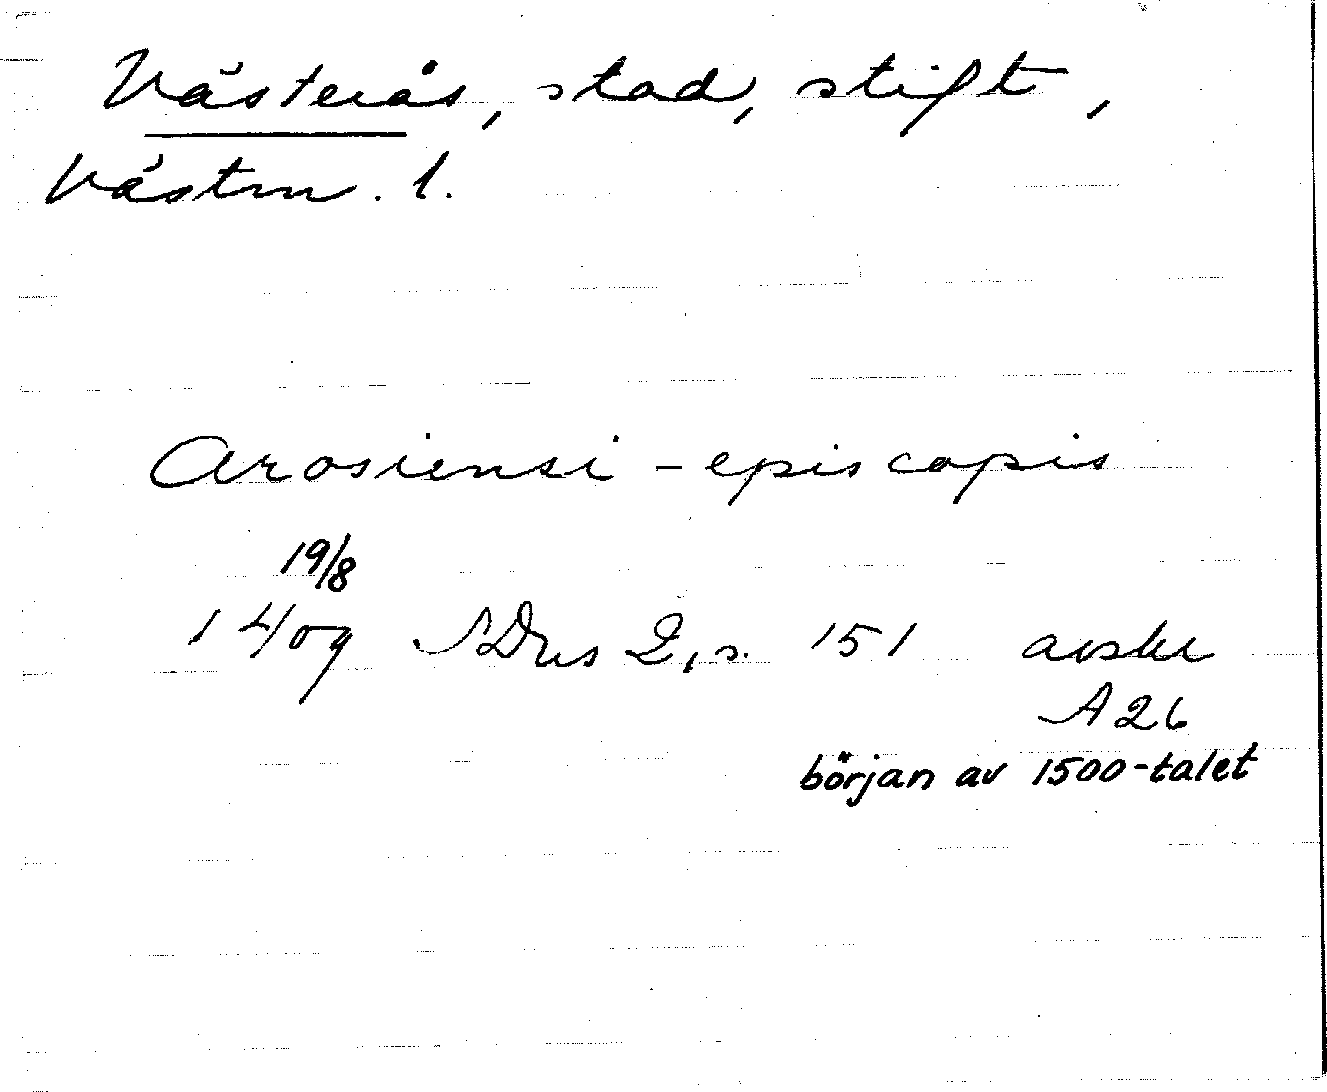 Västerås, stad, stift,
Västm. l.
Arosiensi - episcopis
19/8
1409 SDns 2, s. 151 avskr
A 26
början av 1500-talet